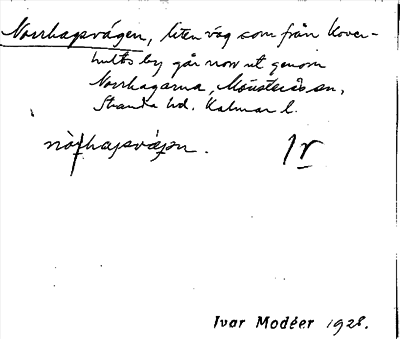 Norrhagsvägen, liten väg som från Kover-
hults by går norr ut genom
Norrhagarna, Mönsterås sn,
Stranda hd. Kalmar l.
Ir
Ivar Modéer 1928.